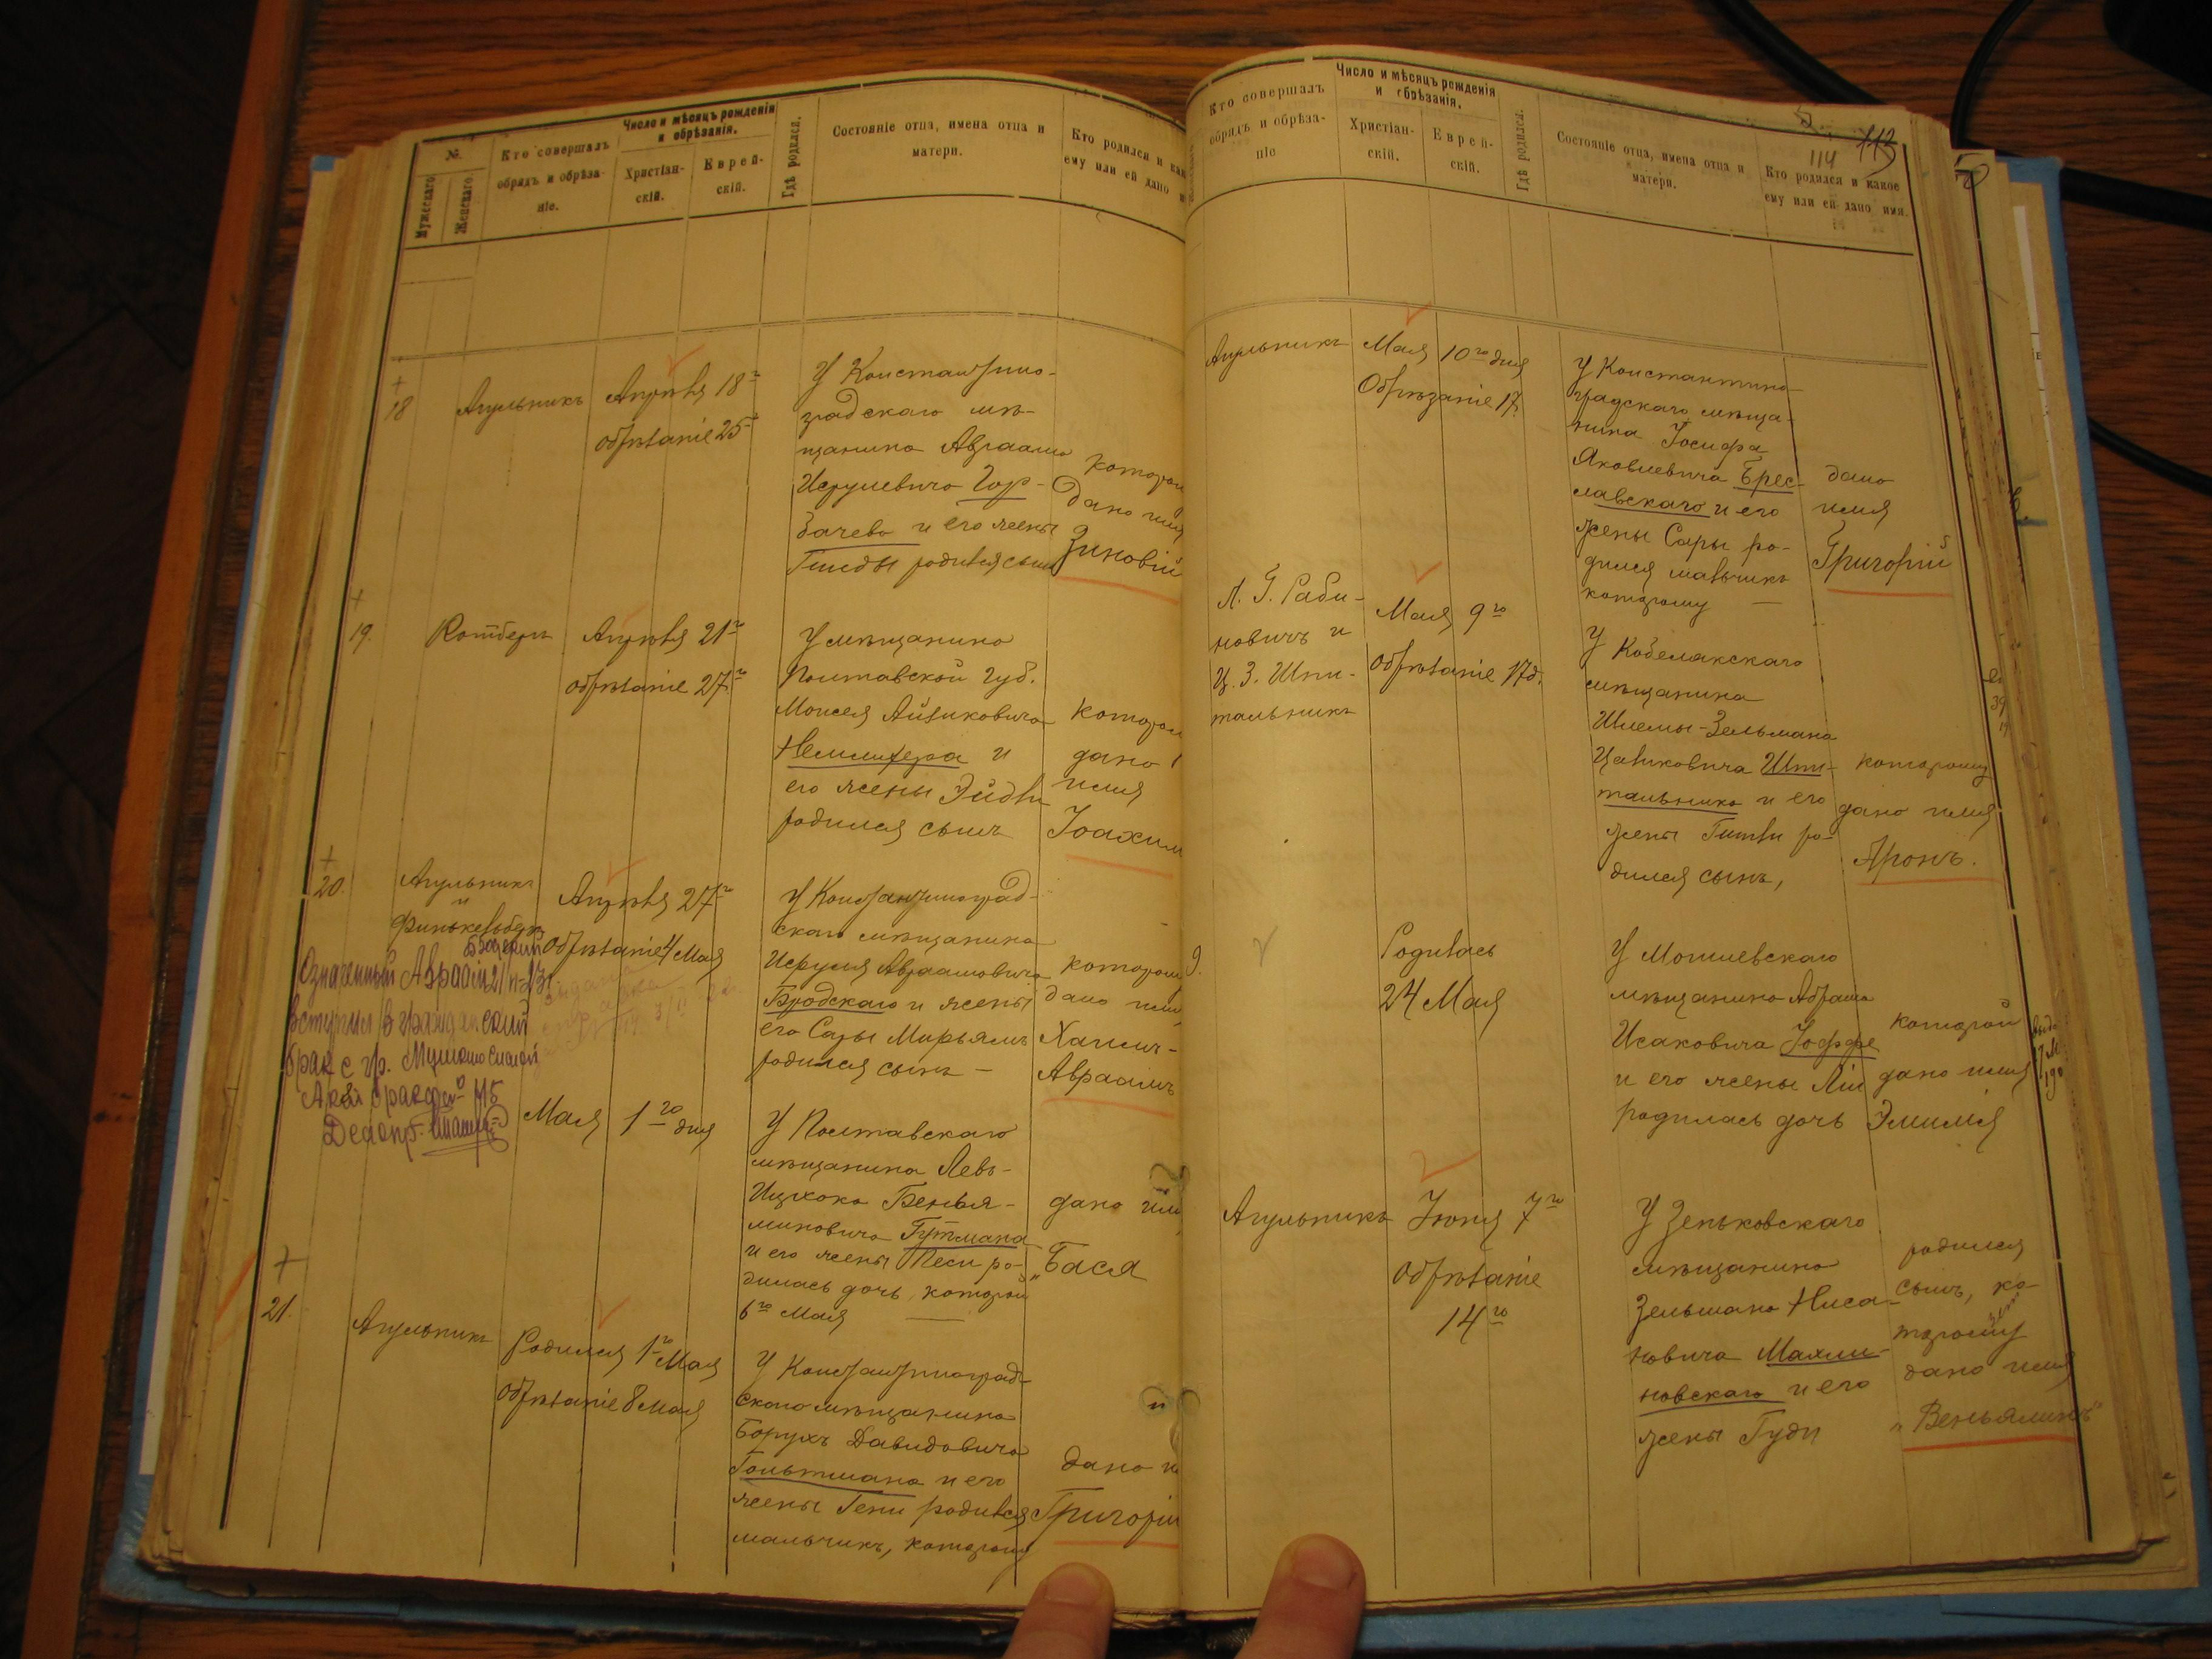 №
Мужескаго
Женскаго.
Кто совершалъ
обрядъ и обрѣза-
ніе.
Число и мѣсяцъ рожденія
и обрѣзанія.
Христіан-
скій.
Еврей-
скій.
Гдѣ родился.
Состояніе отца, имена отца и
матери.
Кто родился и как
ему или ей дано
18
Агульникъ
Апрѣля 18го
обрѣзаніе 25
У Константино-
градскаго мѣ-
щанина Авраама
Исрулевича Гор-
бачева и его жены
родился сынъ
котором
дано имя
Зиновій
19.
Апрѣля 21го
обрѣзаніе 27го
У мѣщанина
Полтавской губ.
Моисея Айзиковича
и
его жены Эйдли
родился сынъ
котором
дано
имя
Іоахим
20.
Агульникъ
и
Апрѣля 27го
Обрѣзаніе 4 Мая
У Константиноград-
скаго мѣщанина
Исруля Авраамовича
Бродскаго и жены
его Сары Мирьямъ
родился сынъ —
котором
дано имя
Хаимъ-
Авраамъ
Означенный Авраам
Бродский
вступил в гражданский
брак с гр.
Мая 1го дня
У Полтавскаго
мѣщанина Левъ-
Ицхока Бенья-
миновича Гутмана
и его жены Песи ро-
дилась дочь, которой
6го Мая —
дано им
„Бася
21.
Агульникъ
Родился 1го Мая
Обрѣзаніе 8 мая
У Константиноград-
скаго мѣщанина
Борухъ Давидовича
Гольтмана и его
жены Гени родился
мальчикъ, которому
дано и
Григорій
Кто совершалъ
обрядъ и обрѣза-
ніе
Число и мѣсяцъ рожденія
и обрѣзанія.
Христіан-
скій.
Еврей-
скій.
Гдѣ родился.
Состояніе отца, имена отца и
матери.
114
113
Кто родился и какое
ему или ей дано имя.
Агульникъ
Мая 10го дня
Обрѣзаніе 17.
У Константино-
градскаго мѣща-
нина Іосифа
Яковлевича Брес-
лавскаго и его
жены Сары ро-
дился мальчикъ
которому —
дано
имя
Григорій
Л. Г. Раби-
новичъ и
Ц. З. Шпи-
тальникъ
Мая 9го
Обрѣзаніе 17д.
У Кобелякскаго
мѣщанина
Шлемы-Зельмана
Шпи-
тальника и его
жены Гитли ро-
дился сынъ,
которому
дано имя
Аронъ.
9.
Родилась
24 Мая
У Могилевскаго
мѣщанина Абрама
Исаковича Іоффе
и его жены Ліи
родилась дочь
которой
дано имя
Эмилія
Агульникъ
Іюня 7го
Обрѣзаніе
14го
У Зеньковскаго
мѣщанина
Зельмана Ниса-
новича Махли-
новскаго и его
жены Гуди
родился
сынъ, ко-
торому
дано имя
„Веньяминъ“